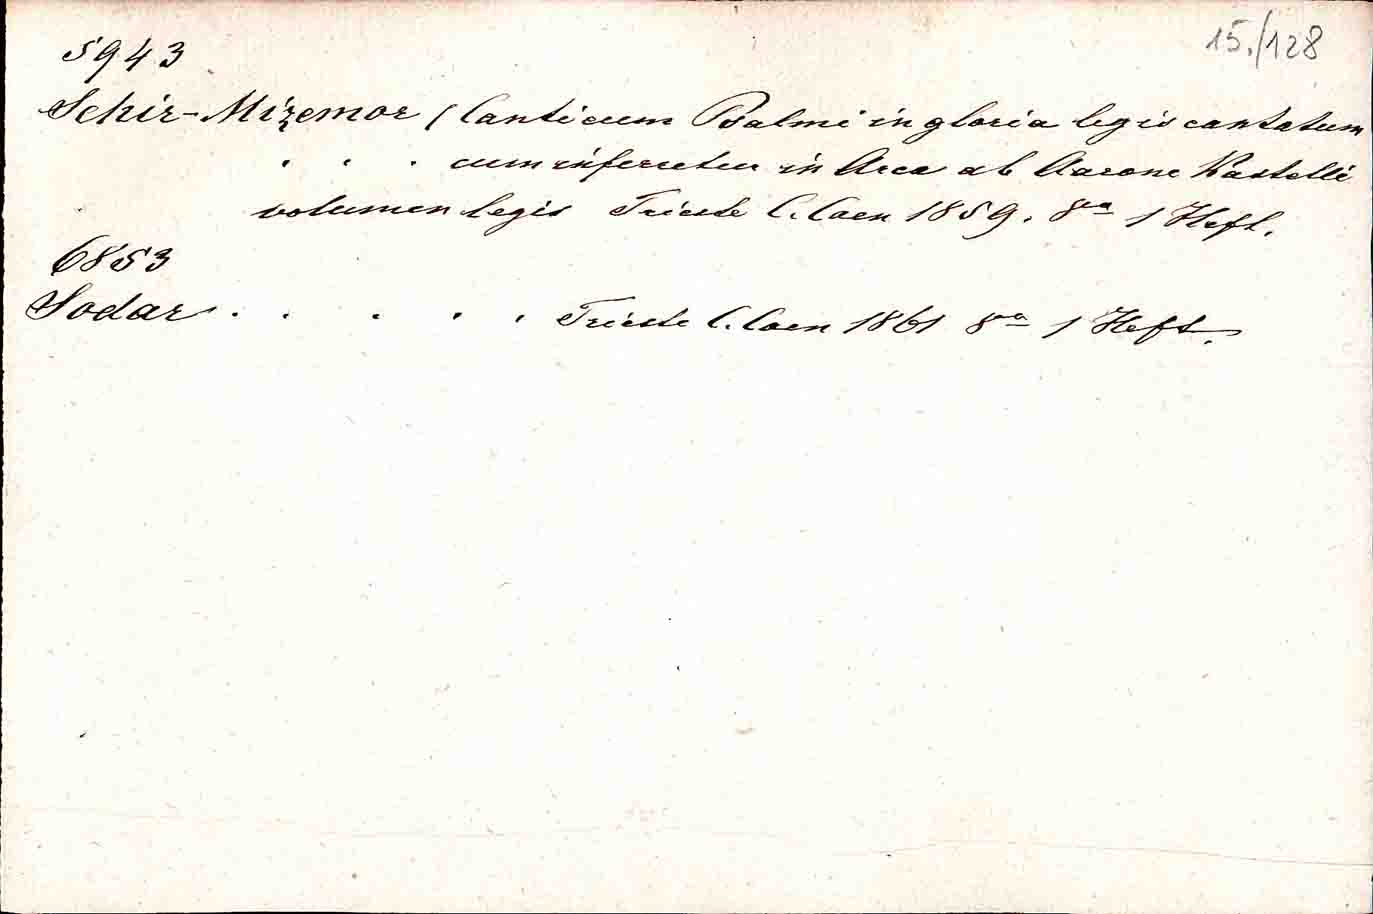 15./128
5943
Schir-Mizemor (Canticum Psalmi in gloria legis cantatum
. . . cum inferretur in Arca ab Aarone Kastelli
volumen legis Trieste C. Coen 1859. 8va 1 Heft.
6853
Sodar . . . . . Trieste C. Coen 1861 8va 1 Heft.